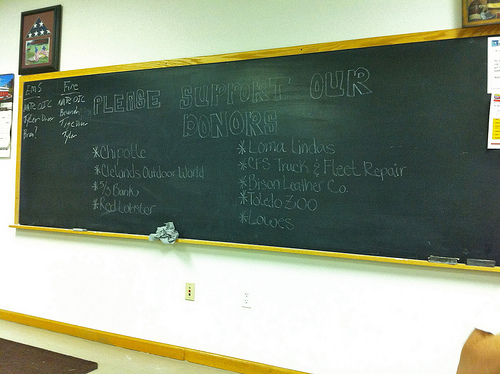 EMS Fire
NATE OIC NATE OIC
Tyler
PLEASE SUPPORT OUR
DONORS
*Chipotle
*Clelands Outdoor World
*5/3 Bank
*Red Lobster
*Loma Lindas
*CFS Truck & Fleet Repair
*Bison Leather Co.
*Toledo Zoo
*Lowes